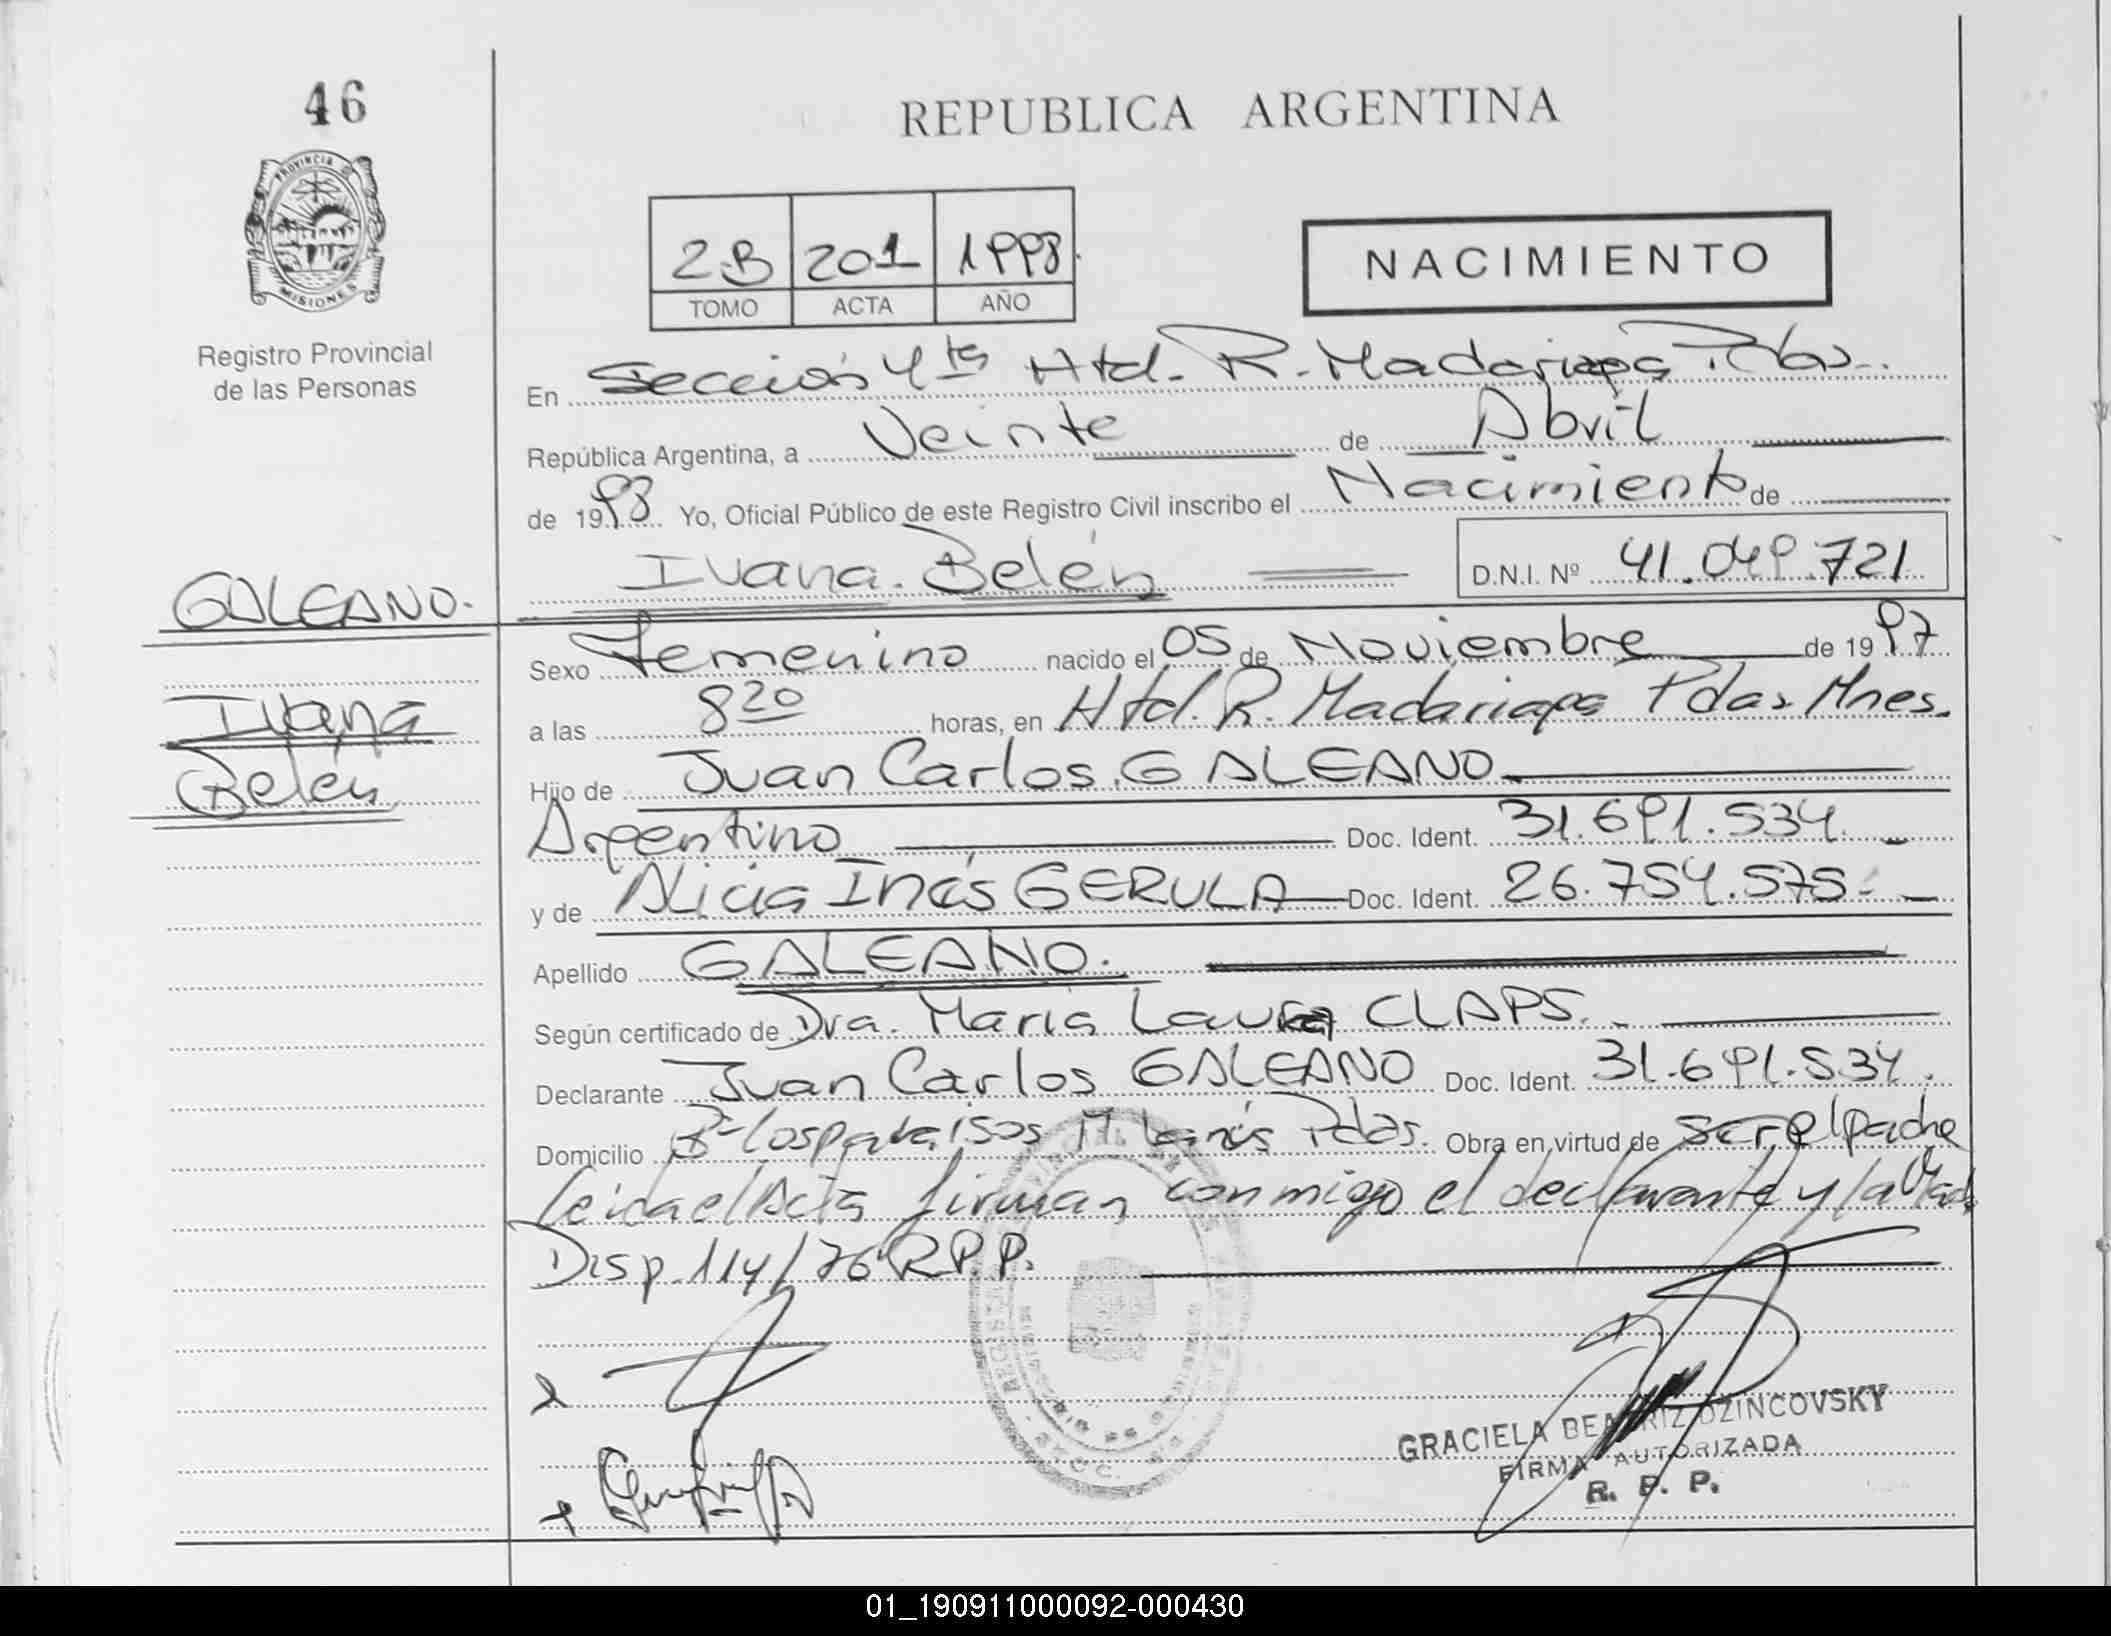 46
REPUBLICA ARGENTINA
PROVINCIA
MISIONES
Registro Provincial
de las Personas
2-B 201 1998
TOMO ACTA AÑO
NACIMIENTO
En Sección 4ta Htal. R. Madariaga Pdas.
República Argentina, a Veinte de Abril
de 1998 Yo, Oficial Público de este Registro Civil inscribo el Nacimiento de
Ivana Belén D.N.I. Nº 41.049.721
GALEANO.
Ivana
Belén
Sexo Femenino nacido el 05 de Noviembre de 1997
a las 8 20 horas, en Htal. R. Madariaga Pdas Mnes.
Hijo de Juan Carlos GALEANO
Argentino Doc. Ident. 31.691.534
y de Alicia Inés GERULA Doc. Ident. 26.754.575
Apellido GALEANO.
Según certificado de Dra. María Laura CLAPS.
Declarante Juan Carlos GALEANO Doc. Ident. 31.691.534.
Domicilio Bº Los paraisos M. Lanús Pdas. Obra en virtud de ser el padre
leida el Acta firman conmigo el declarante y la Mad
Disp. 114/76 R.P.P.
GRACIELA BEATRIZ DZINCOVSKY
FIRMA AUTORIZADA
R. P. P.
01_190911000092-000430